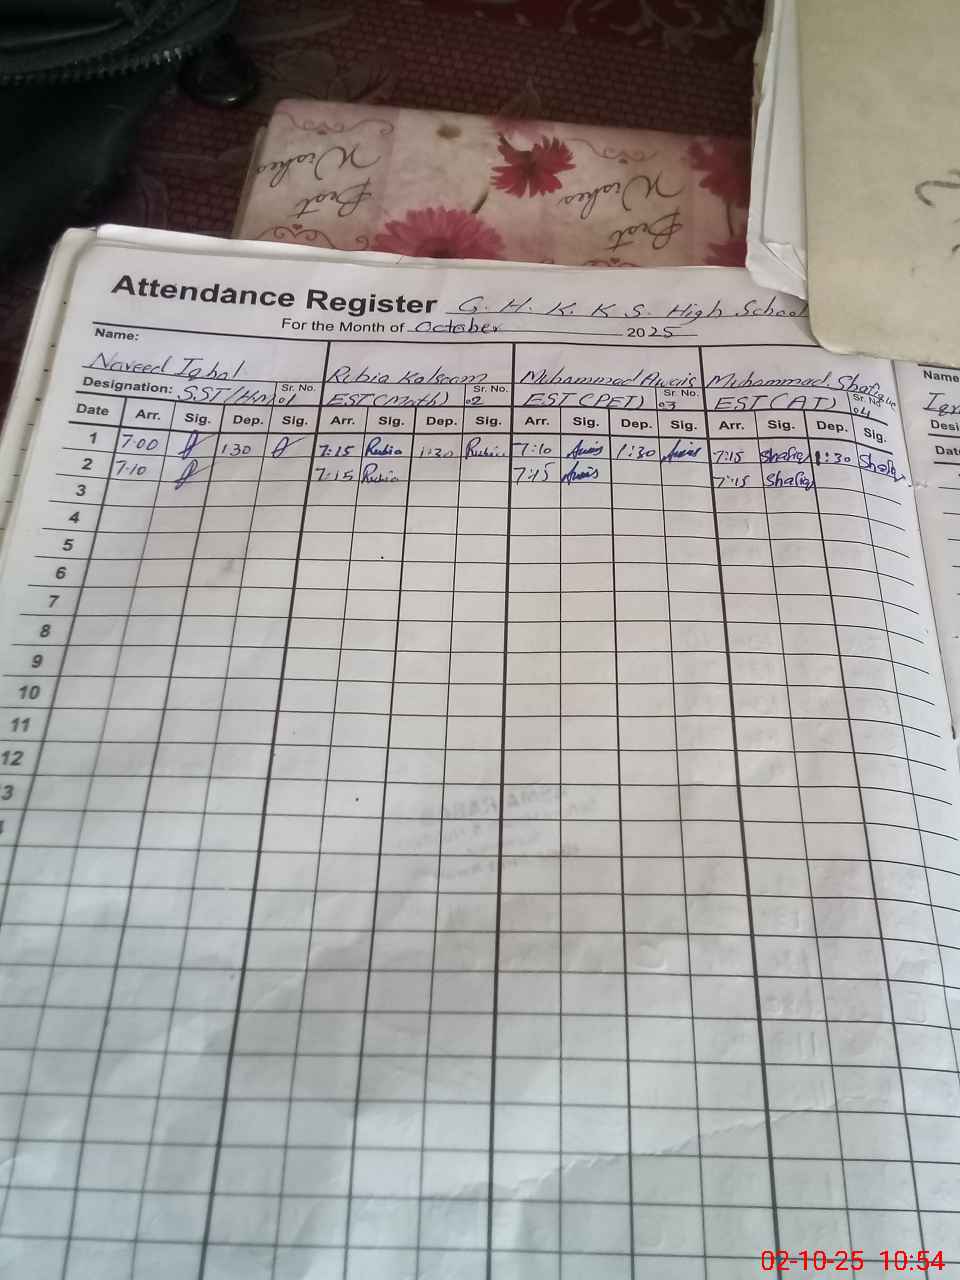 Best Wishes
Best Wishes
Attendance Register G. H. K. K S. High School
For the Month of October 2025
Name:
Naveed Iqbal Rubia Kalsoom Muhammad Awais Muhammad Shafique
Designation: S.ST/(HM) Sr. No. 01 EST(Math) Sr. No. 02 EST(PET) Sr. No. 03 EST(AT) Sr. No 04
Date Arr. Sig. Dep. Sig. Arr. Sig. Dep. Sig. Arr. Sig. Dep. Sig. Arr. Sig. Dep. Sig.
1 7:00 130 7:15 Rubia 1:30 Rubia 7:10 Awais 1:30 Awais 7:15 Shafiq 1:30 Shafiq
2 7:10 7:15 Rubia 7:15 Awais 7:15 Shafiq
3
4
5
6
7
8
9
10
11
12
3
Name
Desi
Dat
02-10-25 10:54